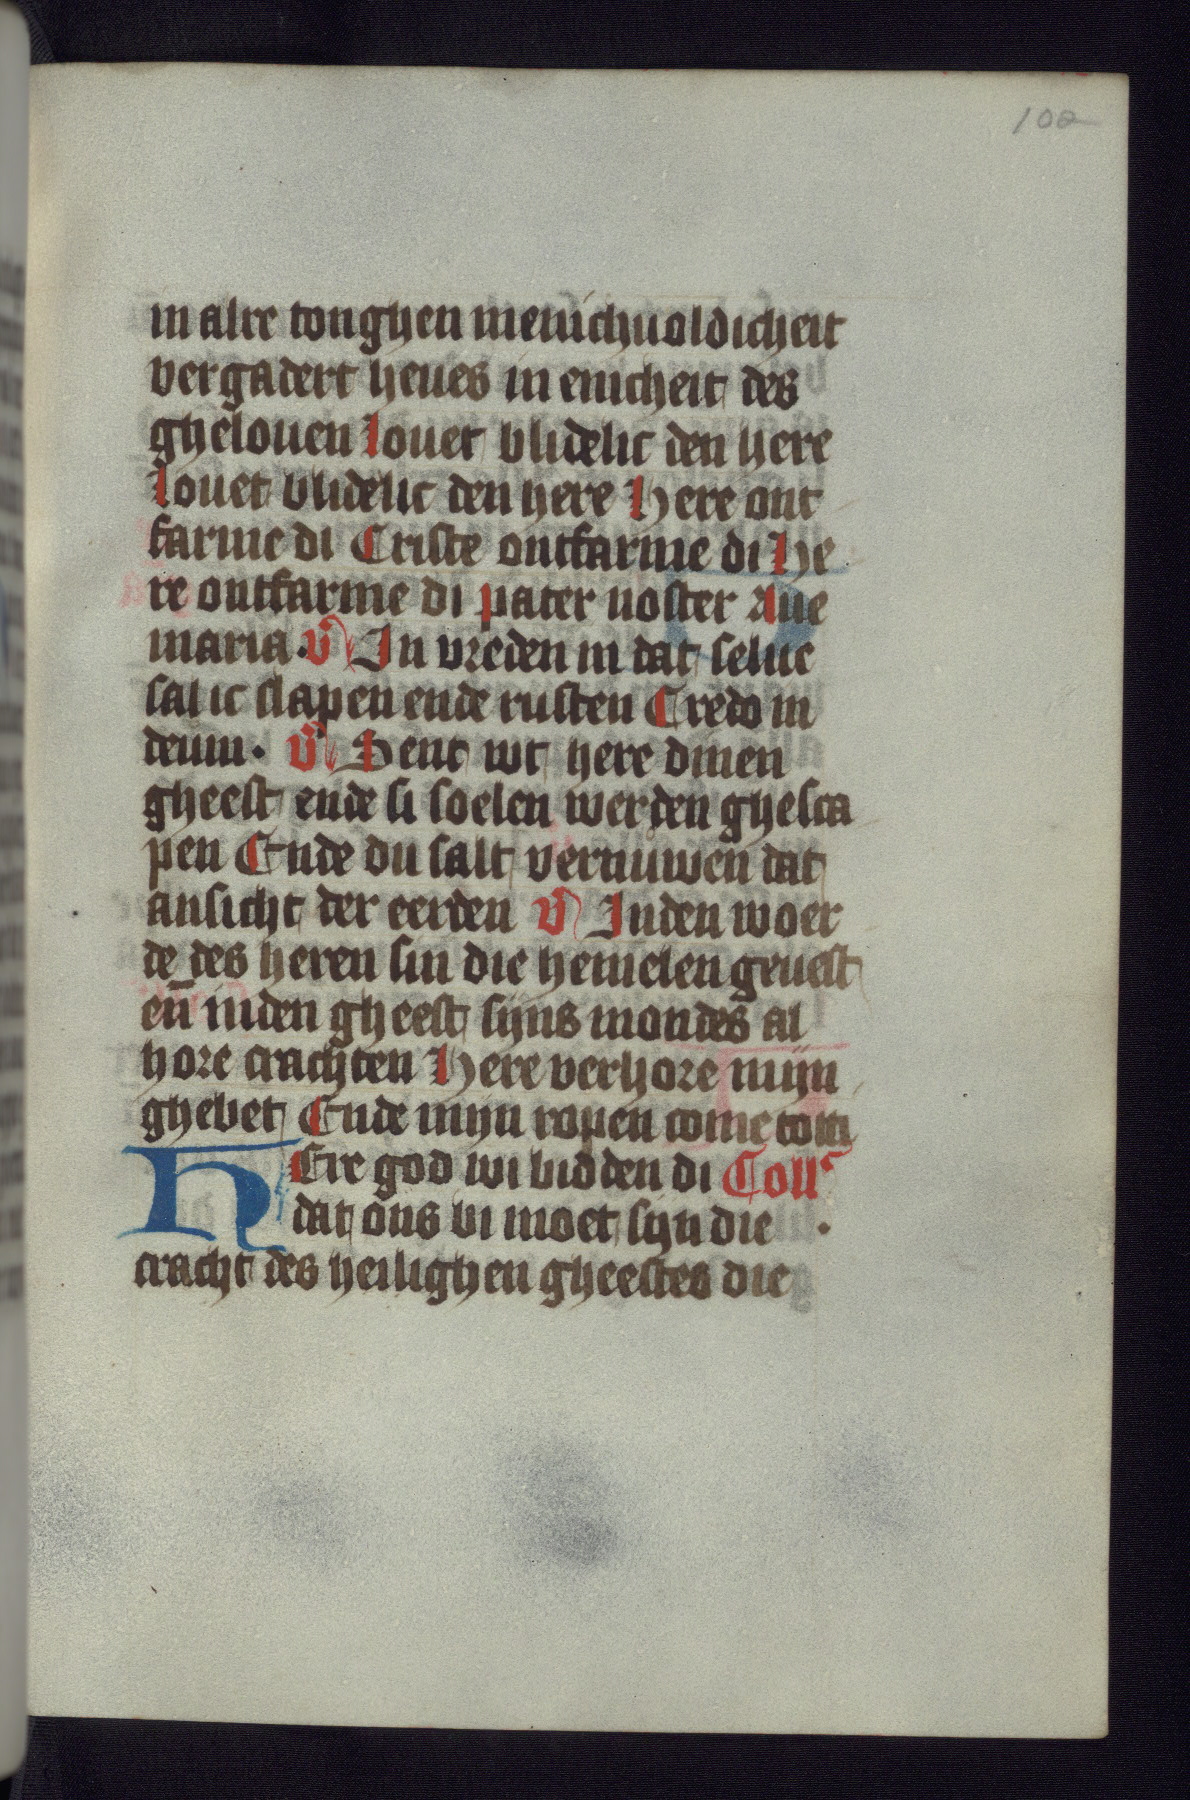 102
in alre tonghen menichuoldicheit
vergadert heues in enicheit des
ghelouen louet blidelic den here
louet blidelic den here Here ont
farme di Criste ontfarme di He
re ontfarme di pater noster aue
maria. v̄ In vreden in dat selue
sal ic slapen ende rusten Credo in
deum. v̄ Sent wt here dinen
gheest ende si soelen werden ghesca
pen Ende du salt vernuwen dat
ansicht der eerden v̄ Inden woer
de des heren sin die hemelen geuest
en̄ inden gheest sijns mondes al
hore crachten Here verhore mijn
ghebet Ende mijn ropen come totti
HEre god wi bidden di Coll'
dat ons bi moet sijn die .
cracht des heilighen gheestes die